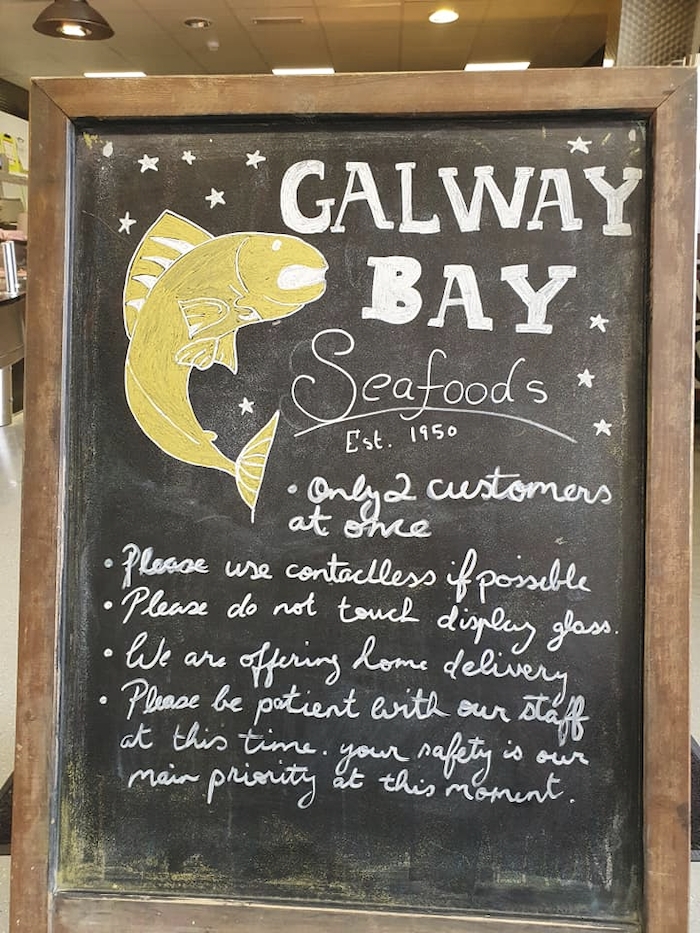 GALWAY
BAY
Seafoods
Est. 1950
• Only 2 customers
at once
• Please use contactless if possible
• Please do not touch display glass.
• We are offering home delivery
• Please be patient with our staff
at this time. your safety is our
main priority at this moment.